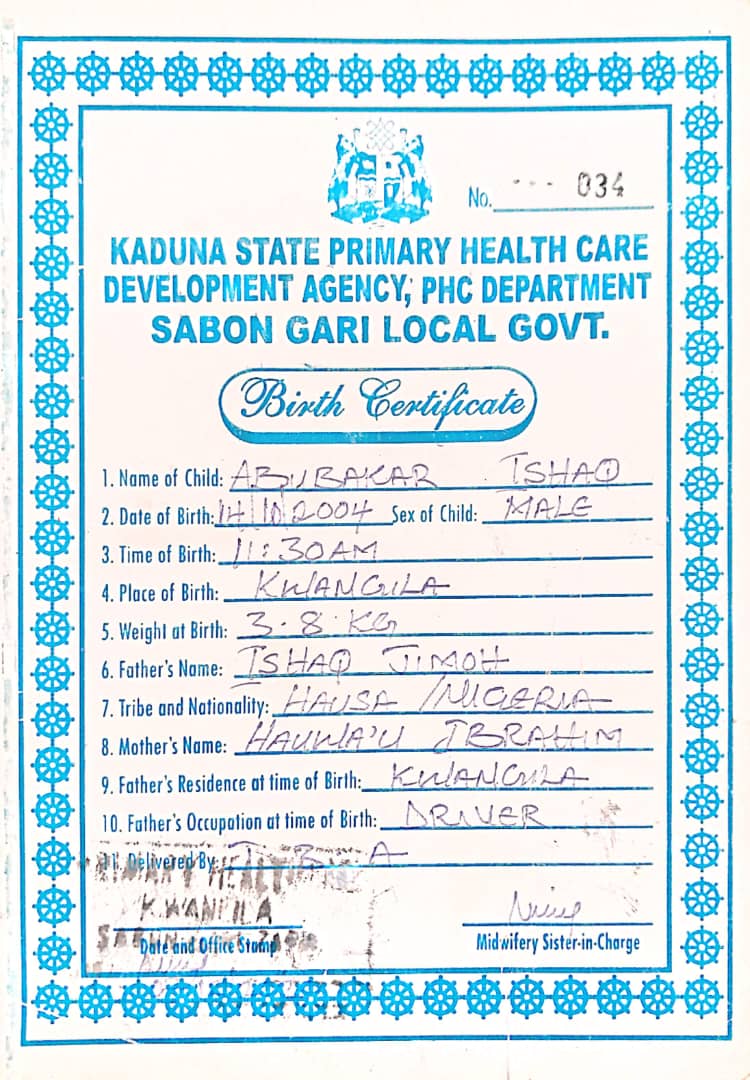 No. --- 034
KADUNA STATE PRIMARY HEALTH CARE
DEVELOPMENT AGENCY, PHC DEPARTMENT
SABON GARI LOCAL GOVT.
Birth Certificate
1. Name of Child: ABUBAKAR ISHAQ
2. Date of Birth: 14/10/2004 Sex of Child: MALE
3. Time of Birth: 11:30AM
4. Place of Birth: KWANGILA
5. Weight at Birth: 3.8 KG
6. Father's Name: ISHAQ JIMOH
7. Tribe and Nationality: HAUSA /NIGERIA
8. Mother's Name: HAUWA'U IBRAHIM
9. Father's Residence at time of Birth: KWANGILA
10. Father's Occupation at time of Birth: DRIVER
11. Delivered By: T B A
KWANGILA
Date and Office Stamp
Midwifery Sister-in-Charge